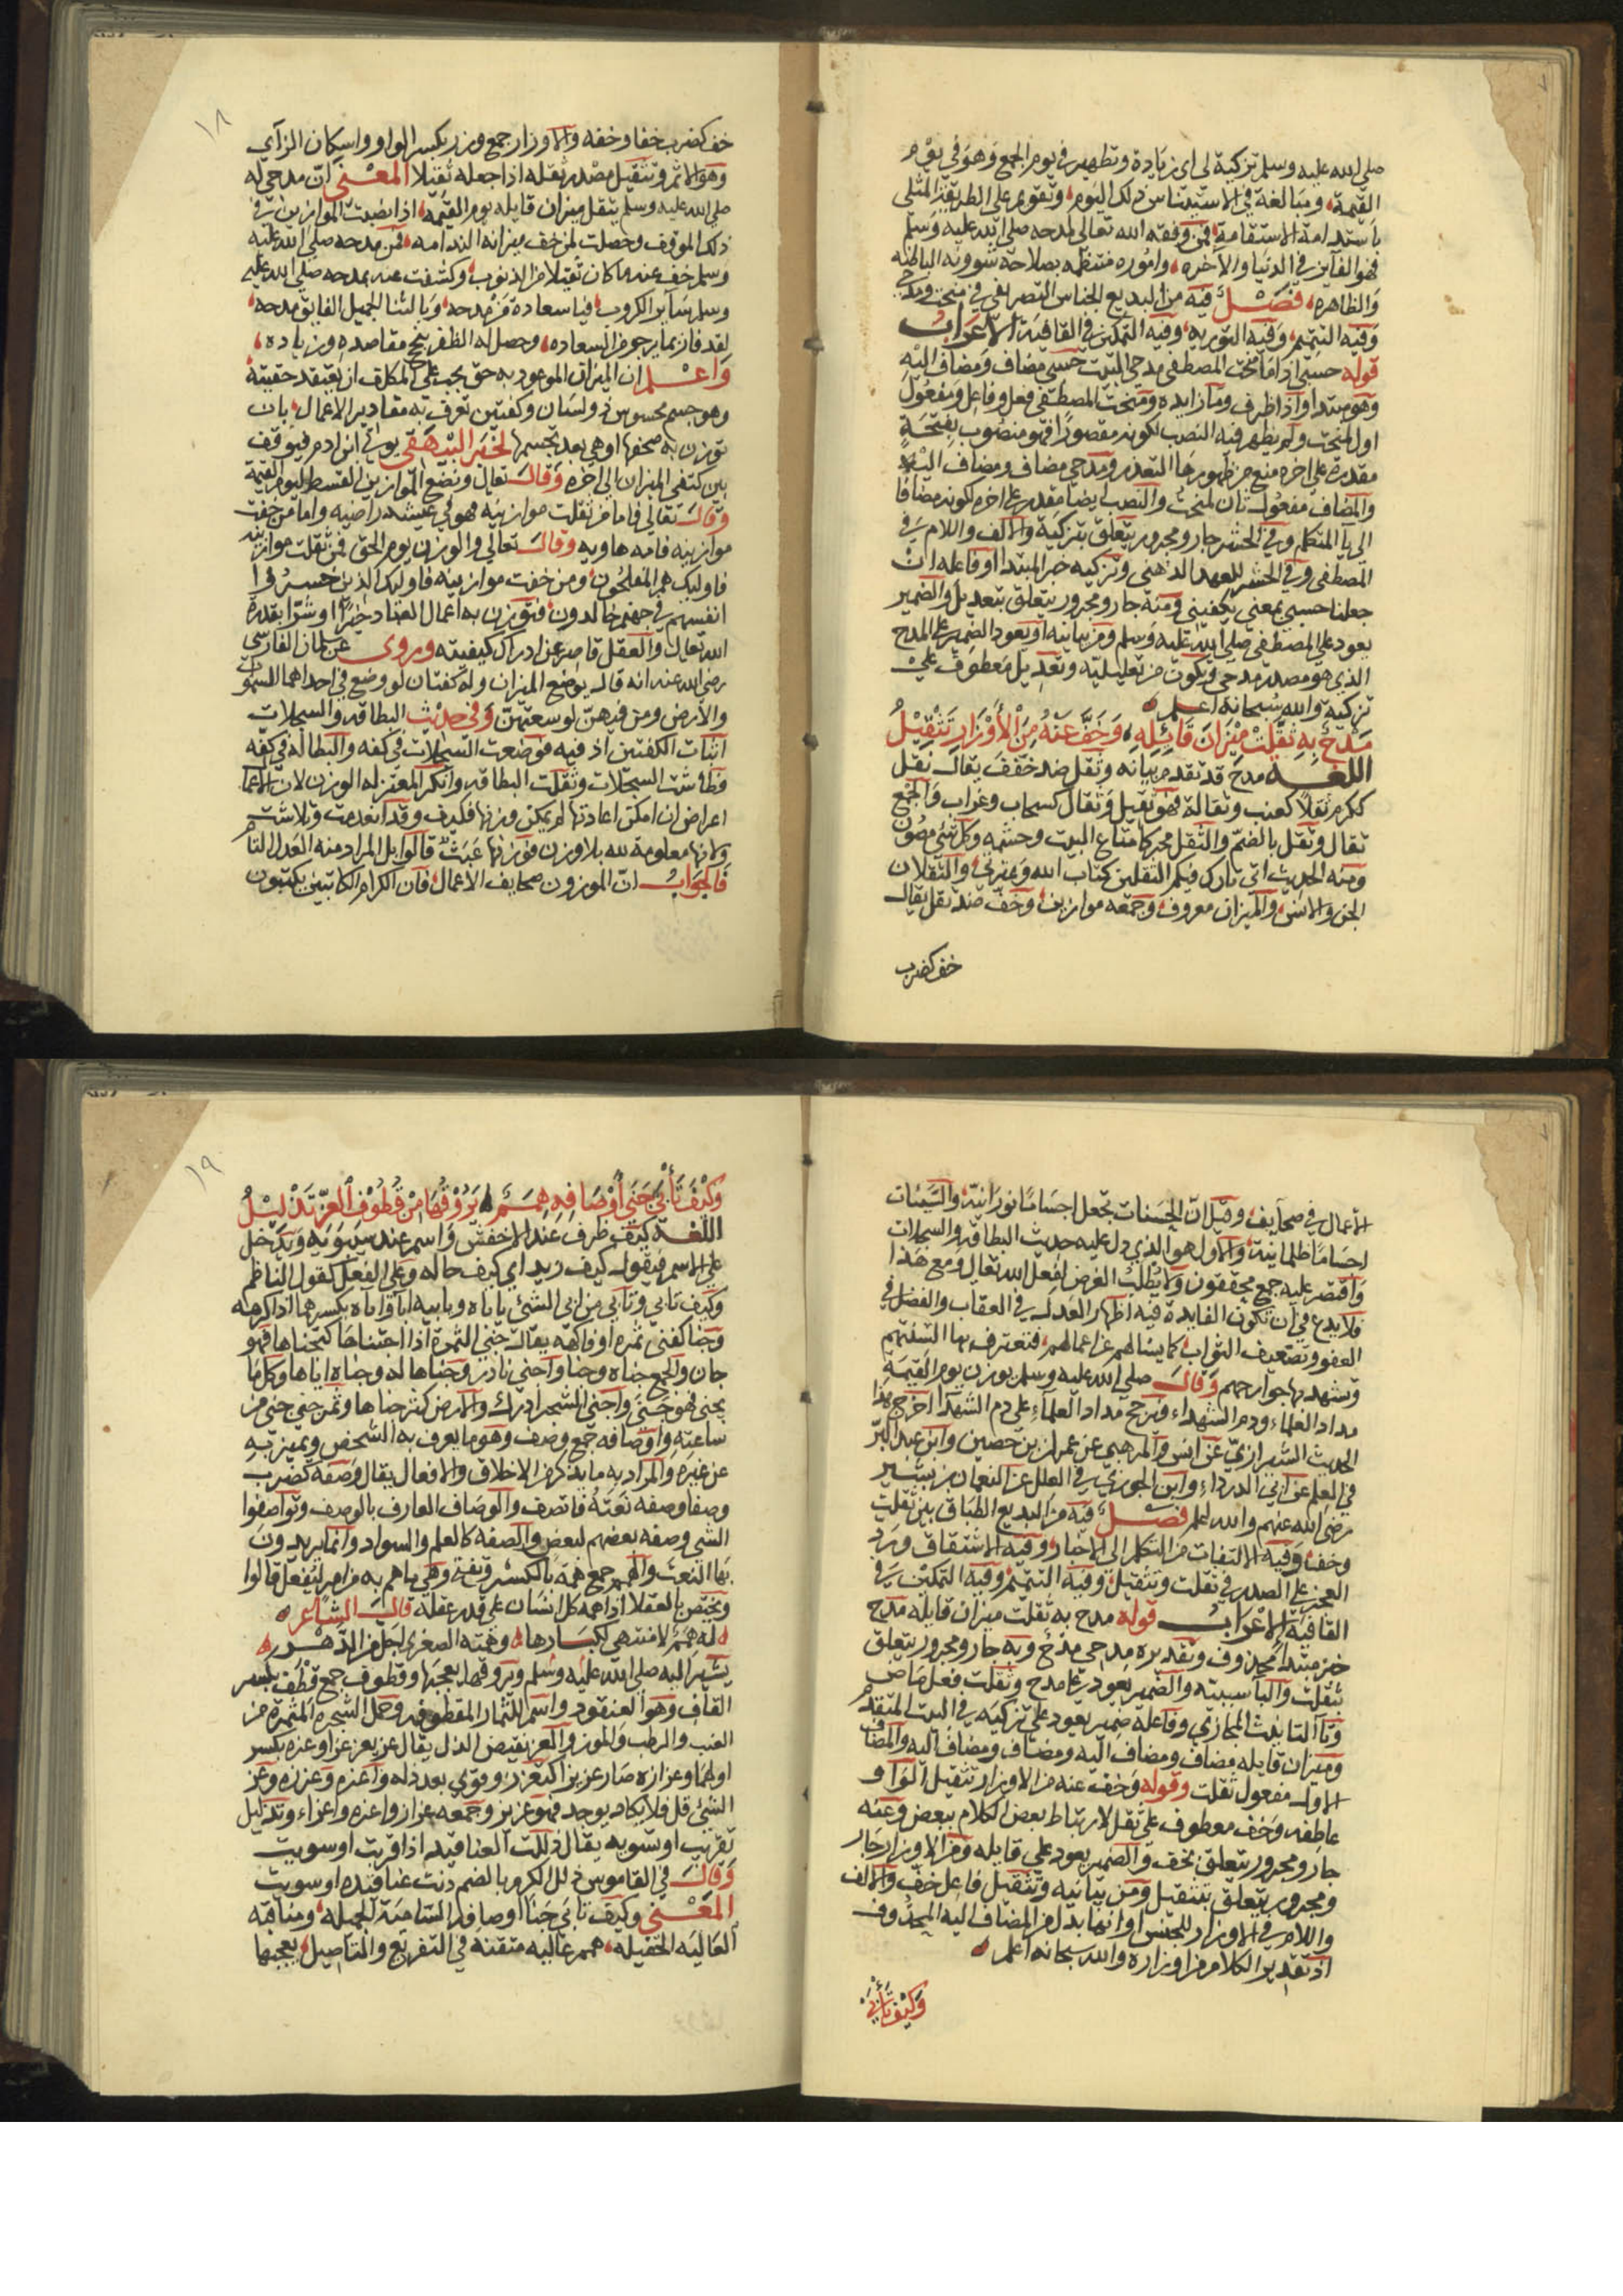 صلى الله عليه وسلم تزكية لى اى زيادة وتطهير فى يوم الجمع وهو فى يوم
القيمة، ومبالغة فى الاستيناس ذلك اليوم، وتقوم على الطريقة المثلى
باستدامة الاستقامة، فمن وفقه الله تعالى لمدحه صلى الله عليه وسلم
فهو الفايز فى الدنيا والآخره، واموره منتظمه بصلاحه شوونه الباطنه
والظاهره، فصل فيه من البديع الجناس التصريفى فى منحت ومدحى
وفيه التتميم، وفيه التوريه، وفيه التمكين فى القافية الاعراب
قوله حسبى اذا ما منحت المصطفى مدحى البيت حسبى مضاف ومضاف اليه
وهو مبتدا واذا ظرف وما زايده ومنحت المصطفى فعل وفاعل ومفعول
اول لمنحت ولم يظهر فيه النصب لكونه مقصورا فهو منصوب بفتحة
مقدرة على اخره منع من ظهورها التعذر ومدحى مضاف ومضاف اليه
والمضاف مفعول ثان لمنحت والنصب ايضا مقدر على اخره لكونه مضافا
الى يا المتكلم وفى الحشر جار ومجرور يتعلق بتزكية والالف واللام فى
المصطفى وفى الحشر للعهد الذهنى وتزكيه خبر المبتدا او فاعله ان
جعلنا حسبى بمعنى يكفينى ومنه جار ومجرور يتعلق بتعديل والضمير
يعود على المصطفى صلى الله عليه وسلم ومن بيانيه او يعود الضمير على المدح
الذى هو مصدر مدحى وتكون من تعليليه وتعديل معطوف على
تزكيه والله سبحانه اعلم
مدح به ثقلت ميزان قائله، وخف عنه من الأوزار تثقيل
اللغه مدح قد تقدم بيانه وثقل ضد خفف يقال ثقل
ككرم ثقلا كعنب وثقالة فهو ثقيل وثقال كسحاب وغراب والجمع
ثقال وثقل بالضم والثقل محركا متاع البيت وحشمه وكل شئ مصون
ومنه الحديث انى تارك فيكم الثقلين كتاب الله وعترتى، والثقلان
الجن والانس، والميزان معروف، وجمعه موازين، وخف ضد ثقل يقال
خف كضرب
١٨
خف كضرب خفا وخفه والاوزار جمع وزر بكسر الواو واسكان الزآى
وهو الاثم وتثقيل مصدر ثقله اذا جعله ثقيلا المعنى ان مدحى له
صلى الله عليه وسلم يثقل ميزان قايله يوم القيمه، اذا نصبت الموازين فى
ذلك الموقف وحصلت لمن خف ميزانه الندامه، فمن مدحه صلى الله عليه
وسلم خف عنه ما كان ثقيلا من الذنوب، وكشفت عنه بمدحه صلى الله عليه
وسلم ساير الكروب، فيا سعادة من مدحه، ويا لثنا الجميل الفايق مدحه،
لقد فاز بما يرجو من السعاده، وحصل له الظفر بنجح مقاصده وزياده،
واعلم ان الميزان الموعود به حق يجب على المكلف ان يعتقد حقيته
وهو جسم محسوس ذو لسان وكفتين تعرف به مقادير الاعمال، بان
توزن به صحفها او هى بعد تجسمها لخبر البيهقى يوتى بابن ادم فيوقف
بين كفتى الميزان الى اخره وقال تعالى ونضع الموازين القسط ليوم القيمة
وقال تعالى فاما من ثقلت موازينه فهو فى عيشة راضيه واما من خفت
موازينه فامه هاويه وقال تعالى والوزن يومئذ الحق فمن ثقلت موازينه
فاوليك هم المفلحون، ومن خفت موازينه فاوليك الذين خسروا
انفسهم فى جهنم خالدون، فتوزن به اعمال العباد خيرا او شرا بقدرة
الله تعالى والعقل قاصر عن ادراك كيفيته وروى عن سلمان الفارسى
رضى الله عنه انه قال يوضع الميزان وله كفتان لو وضع فى احداهما السموات
والارض ومن فيهن لوسعتهن وفى حديث البطاقه والسجلات
اثبات الكفتين اذ فيه فوضعت السجلات فى كفه والبطاقه فى كفه
فطاشت السجلات وثقلت البطاقه وانكر المعتزله الوزن لان الاعمال
اعراض ان امكن اعادتها لم يمكن وزنها فكيف وقد انعدمت وتلاشت
ولانها معلومة لله بلا وزن فوزنها عبث قالوا بل المراد منه العدل التام
فالجواب ان الموزون صحايف الاعمال، فان الكرام الكاتبين يكتبون
الاعمال فى صحايف، وقيل ان الحسنات تجعل اجساما نورانية، والسيئات
اجساما ظلمانية، والاول هو الذى دل عليه حديث البطاقه والسجلات
واقتصر عليه جمع محققون ولا يطلب الغرض لفعل الله تعالى ومع هذا
فلا بدع فى ان تكون الفايدة فيه اظهار العدل فى العقاب والفضل فى
العفو وتضعيف الثواب، كما يسالهم عن اعمالهم، فتعترف بها السنتهم
وتشهد بها جوارحهم وقال صلى الله عليه وسلم يوزن يوم القيمة
مداد العلماء ودم الشهداء، فيرجح مداد العلماء على دم الشهدا اخرج هذا
الحديث الشيرازى عن انس والمرهبى عن عمران بن حصين وابن عبد البر
فى العلم عن ابى الدرداء وابن الجوزى فى العلل عن النعمان بن بشير
رضى الله عنهم والله اعلم فصل فيه من البديع الطباق بين ثقلت
وخف، وفيه الالتفات من التكلم الى الاخبار، وفيه الاشتقاق ورد
العجز على الصدر فى ثقلت وتثقيل، وفيه التتميم، وفيه التمكين فى
القافية الاعراب قوله مدح به ثقلت ميزان قايله مدح
خبر مبتدا محذوف وتقديره مدحى مدح وبه جار ومجرور يتعلق
بثقلت والبا سببيه والضمير يعود على مدح وثقلت فعل ماض
وتا التانيث المجازى وفاعله ضمير يعود على تزكيه فى البيت المتقدم
وميزان قايله مضاف ومضاف اليه ومضاف ومضاف اليه والمضاف
الاول مفعول ثقلت وقوله وخف عنه من الاوزار تثقيل الواو
عاطفه وخف معطوف على ثقل لارتباط بعض الكلام ببعض وعنه
جار ومجرور يتعلق بخف والضمير يعود على قايله ومن الاوزار جار
ومجرور يتعلق بتثقيل ومن بيانيه وتثقيل فاعل خف والالف
واللام فى الاوزار للجنس او انها بدل من المضاف اليه المحذوف
اذ تقدير الكلام من اوزاره والله سبحانه اعلم
وكيف تأبى
١٩
وكيف تأبى جنى أوصافه همم، يروقها من قطوف العز تذليل
اللغه كيف ظرف عند الاخفش واسم عند سيبويه ويدخل
على الاسم فيقول كيف زيد اى كيف حاله وعلى الفعل كقول الناظم
وكيف تابى وتابى من ابى الشئ ياباه ويابيه اباء واباه بكسرهما اذا كرهه
وجنا كفتى ثمره او فاكهه يقال جنى الثمرة اذا اجتناها كتجناها فهو
جان والجمع جناه وجنا واجنى نادر وجناها له وجناه اياها وكل ما
يجنى فهو جنى واجنى الشجر ادرك والارض كثر جناها وثمر جنى جنى من
ساعته واوصافه جمع وصف وهو ما يعرف به الشخص ويميز به
عن غيره والمراد به ما يذكر من الاخلاق والافعال يقال وصفه كضرب
وصفا وصفه نعته فاتصف والوصاف العارف بالوصف وتواصفوا
الشى وصفه بعضهم لبعض والصفه كالعلم والسواد وانما يريدون
بها النعت والهمم جمع همه بالكسر ويفتح وهى ما هم به من امر ليفعل قالوا
ويختص بالعقلا اذ همه كل انسان على قدر عقله قال الشاعر
له همم لا منتهى لكبارها، وهمته الصغرى اجل من الدهر
يشير اليه صلى الله عليه وسلم ويروقها يعجبها وقطوف جمع قطف بكسر
القاف وهو العنقود واسم للثمار المقطوفه وحمل الشجره المثمره من
العنب والرطب والموز والعز نقيض الذل يقال عز يعز عزا وعزه بكسر
اولهما وعزازه صار عزيزا كتعزز وقوى بعد ذله واعزه وعززه وعز
الشئ قل فلا يكاد يوجد فهو عزيز وجمعه عزاز واعزه واعزاء وتذليل
تقريب او تسويه يقال ذللت العناقيد اذا قربت او سويت
وقال فى القاموس ذلل الكرم بالضم دنت عناقيده او سويت
المعنى وكيف تابى جنا اوصافه الساميه الجميله، ومناقبه
العاليه الحفيله، همم عاليه متقنه فى التفريع والتاصيل، يعجبها